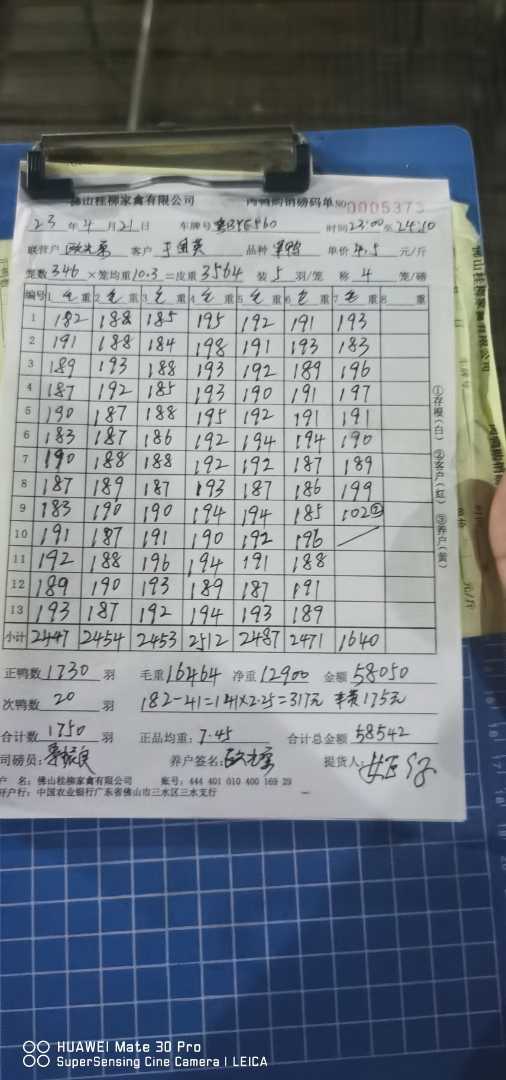 佛山桂柳家禽有限公司 肉鸭购销磅码单 NO 0005373
23年4月21日 车牌号 时间23:00至24:10
联营户 客户 品种 单鸭 单价4.5元/斤
笼数346×笼均重10.3=皮重3564 装5羽/笼 称4笼/磅
编号 1毛重 2毛重 3毛重 4毛重 5毛重 6毛重 7毛重 8 重
1 182 188 185 195 192 191 193
2 191 188 184 198 191 193 183
3 189 193 188 193 192 189 196
4 187 192 185 193 190 191 197
5 190 187 188 195 192 191 191
6 183 187 186 192 194 194 190
7 190 188 188 192 192 187 189
8 187 189 187 193 187 186 199
9 183 190 190 194 194 185 102②
10 191 187 191 190 192 196
11 192 188 196 194 191 188
12 189 190 193 189 187 191
13 193 187 192 194 193 189
小计 2447 2454 2453 2512 2487 2471 1640
①存根(白) ②客户(红) ③养户(黄)
正鸭数1730羽 毛重16464 净重12900 金额58050
次鸭数20羽 182-41=141×2.25=317元 175元
合计数1750羽 正品均重:7.45 合计总金额58542
司磅员: 养户签名: 提货人:
户 名:佛山桂柳家禽有限公司 账号:444 401 010 400 169 29
开户行:中国农业银行广东省佛山市三水区三水支行
HUAWEI Mate 30 Pro
SuperSensing Cine Camera | LEICA